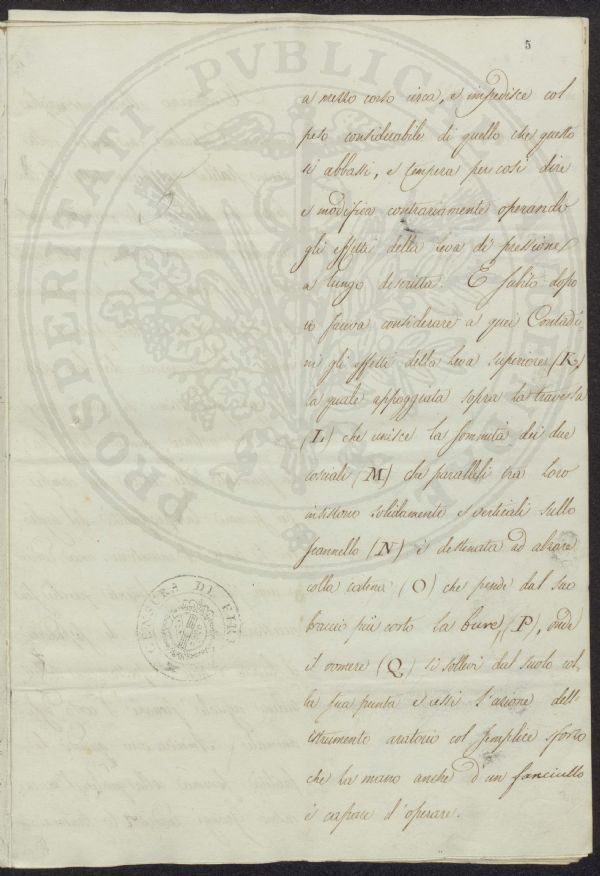 5
a mezzo corso circa, e impedisce col
peso considerabile di quello che questo
si abbassi, e tempera per così dire
e modifica contrariamente operando
gli effetti della leva di pressione
a lungo descritta. E subito dopo
io faceva considerare a quei Contadi-
ni gli effetti della leva superiore (K)
la quale appoggiata sopra la traversa
(L) che unisce la sommità dei due
cosciali (M) che paralleli tra loro
insistono solidamente e verticali sullo
scannello (N) è destinata ad alzare
colla catena (O) che pende dal suo
braccio più corto la bure (P), onde
il vomere (Q) si sollevi dal suolo col-
la sua punta e cessi l'azione dell'
istrumento aratorio col semplice sforzo
che la mano anche d'un fanciullo
è capace d'operare.
PROSPERITATI PVBLICAE
CENSURA DI FIR